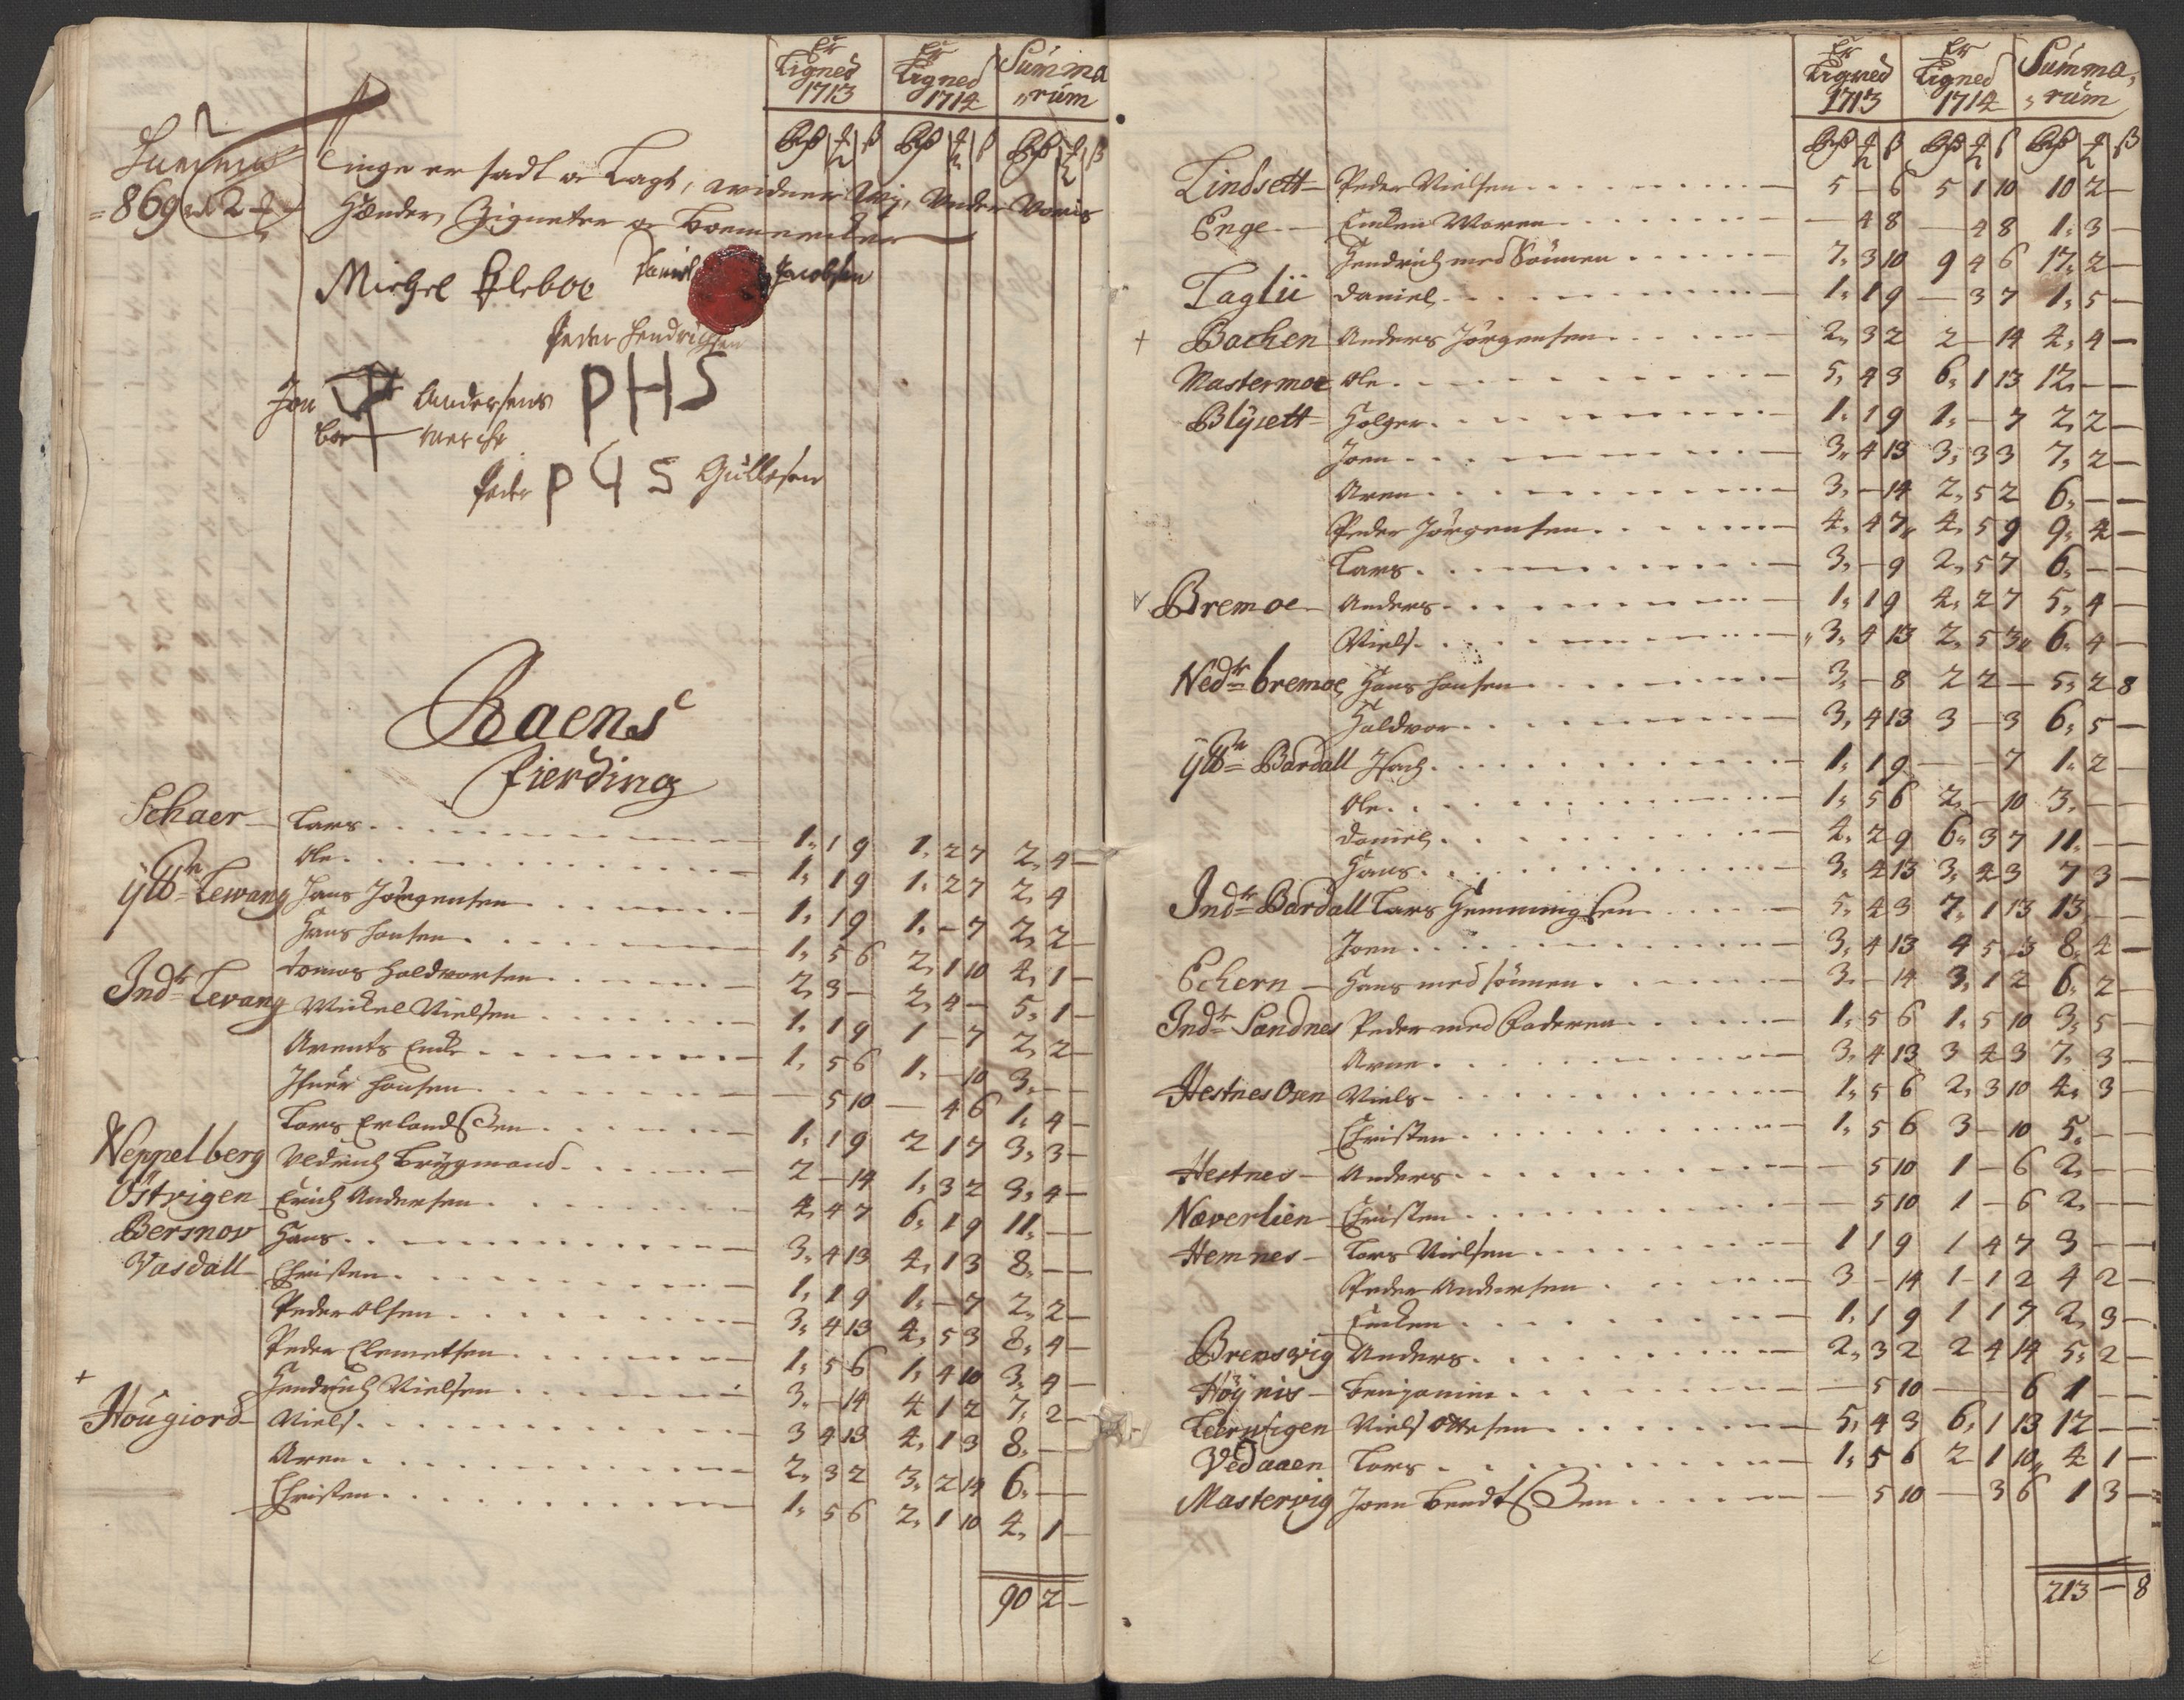 Er Ligned 1713 | Er Ligned 1714 | Summa„rum
Summa
869 rd 2
tinge er sadt og Lagt, widner wij, Under Voris
Hænder, Zigneter og boemercker
Michel Pleboe Daniel Jacobsen
Peder Hendrichsen
PHS
Jon Andersens
boe merche
Peder P G S Gullesen
Raens
Fierding
Schaer Lars 1 1 9 | 1 2 7 | 2 4 –
Ole 1 1 9 | 1 2 7 | 2 4
ÿtt=Lewang Hans Jørgensen 1 1 9 | 1 – 7 | 2 2 –
Hans Hansen 1 5 6 | 2 1 10 | 4 1 –
Tomas Haldvorsen 2 3 – | 2 4 – | 5 1 –
Indr= Levang Michel Nielsen 1 1 9 | 1 – 7 | 2 2 –
Arents Encke 1 5 6 | 1 – 10 | 3 – –
Ifuer Hansen – 5 10 | – 4 6 | 1 4 –
Lars Erlandsen 1 1 9 | 2 1 7 | 3 3 –
Neppelberg Vedrich Brÿgmand 2 – 14 | 1 3 2 | 3 4 –
Østvigen Erich Andersen 4 4 7 | 6 1 9 | 11 – –
Bersnov Hans 3 4 13 | 4 1 3 | 8 – –
Vasdall Christen 1 1 9 | 1 – 7 | 2 2 –
Peder Olsen 3 4 13 | 4 5 3 | 8 4 –
Peder Clemetsen 1 5 6 | 1 4 10 | 3 4 –
+ Hendrich Nielsen 3 – 14 | 4 1 2 | 7 2 –
Hougiord Niels 3 4 13 | 4 1 3 | 8 – –
Aren 2 3 2 | 3 2 14 | 6 – –
Christen 1 5 6 | 2 1 10 | 4 1 –
90 2 –
Er Ligned 1713 | Er Ligned 1714 | Summa„rum
Lindsett Peder Nielsen 5 – 6 | 5 1 10 | 10 2 –
Enge Encken Maren – 4 8 | – 4 8 | 1 3 –
Hendrich med Sönnen 7 3 10 | 9 4 6 | 17 2 –
Taglii Daniel 1 1 9 | – 3 7 | 1 5 –
+ Bachen Anders Jørgensen 2 3 2 | 2 – 14 | 4 4 –
Mastermoe Ole 5 4 3 | 6 1 13 | 12 – –
Blÿsett Holger 1 1 9 | 1 – 7 | 2 2 –
Joen 3 4 13 | 3 3 3 | 7 2 –
Aren 3 – 14 | 2 5 2 | 6 – –
Peder Jørgensen 4 4 7 | 4 5 9 | 9 4 –
Lars 3 – 9 | 2 5 7 | 6 – –
Bremoe Anders 1 1 9 | 4 2 7 | 5 4 –
Niels 3 4 13 | 2 5 3 | 6 4 –
Nedr= bremoe Hans Hansen 3 – 8 | 2 2 – | 5 2 8
Haldvor 3 4 13 | 3 – 3 | 6 5 –
ÿtt= Bardall Isach 1 1 9 | – – 7 | 1 2 –
Ole 1 5 6 | 2 – 10 | 3 – –
Daniel 4 2 9 | 6 3 7 | 11 – –
Hans 3 4 13 | 3 4 3 | 7 3 –
Indr= Bardall Lars Hemmingsen 5 4 3 | 7 1 13 | 13 – –
Joen 3 4 13 | 4 5 3 | 8 4 –
Echern Hans med sönnen 3 – 14 | 3 1 2 | 6 2 –
Indr= Sandnes Peder med Faderen 1 5 6 | 1 5 10 | 3 5 –
Arne 3 4 13 | 3 4 3 | 7 3 –
Hestnes Osen Niels 1 5 6 | 2 3 10 | 4 3 –
Christen 1 5 6 | 3 – 10 | 5 – –
Hestnes Anders – 5 10 | 1 – 6 | 2 – –
Næverlien Christen – 5 10 | 1 – 6 | 2 – –
Hemnes Lars Nielsen 1 1 9 | 1 4 7 | 3 – –
Peder Andersen 3 – 14 | 1 1 2 | 4 2 –
Encken 1 1 9 | 1 1 7 | 2 3 –
Brensvig Anders 2 3 2 | 2 4 14 | 5 2 –
Høÿnis Benjamin – 5 10 | – – 6 | 1 – –
Leerwigen Niels Ottesen 5 4 3 | 6 1 13 | 12 – –
Vedaaen Lars 1 5 6 | 2 1 10 | 4 1 –
Mastervig Joen Bendtsen – 5 10 | – 3 6 | 1 3 –
213 – 8